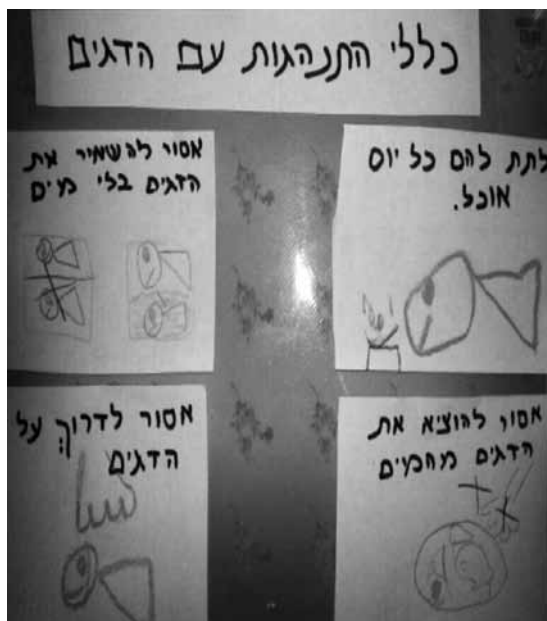 כללי התנהגות עם הדגים
לתת להם כל יום
אוכל.
אסור להשאיר את
הדגים בלי מים
אסור להוציא את
הדגים מהמים
אסור לדרוך על
הדגים